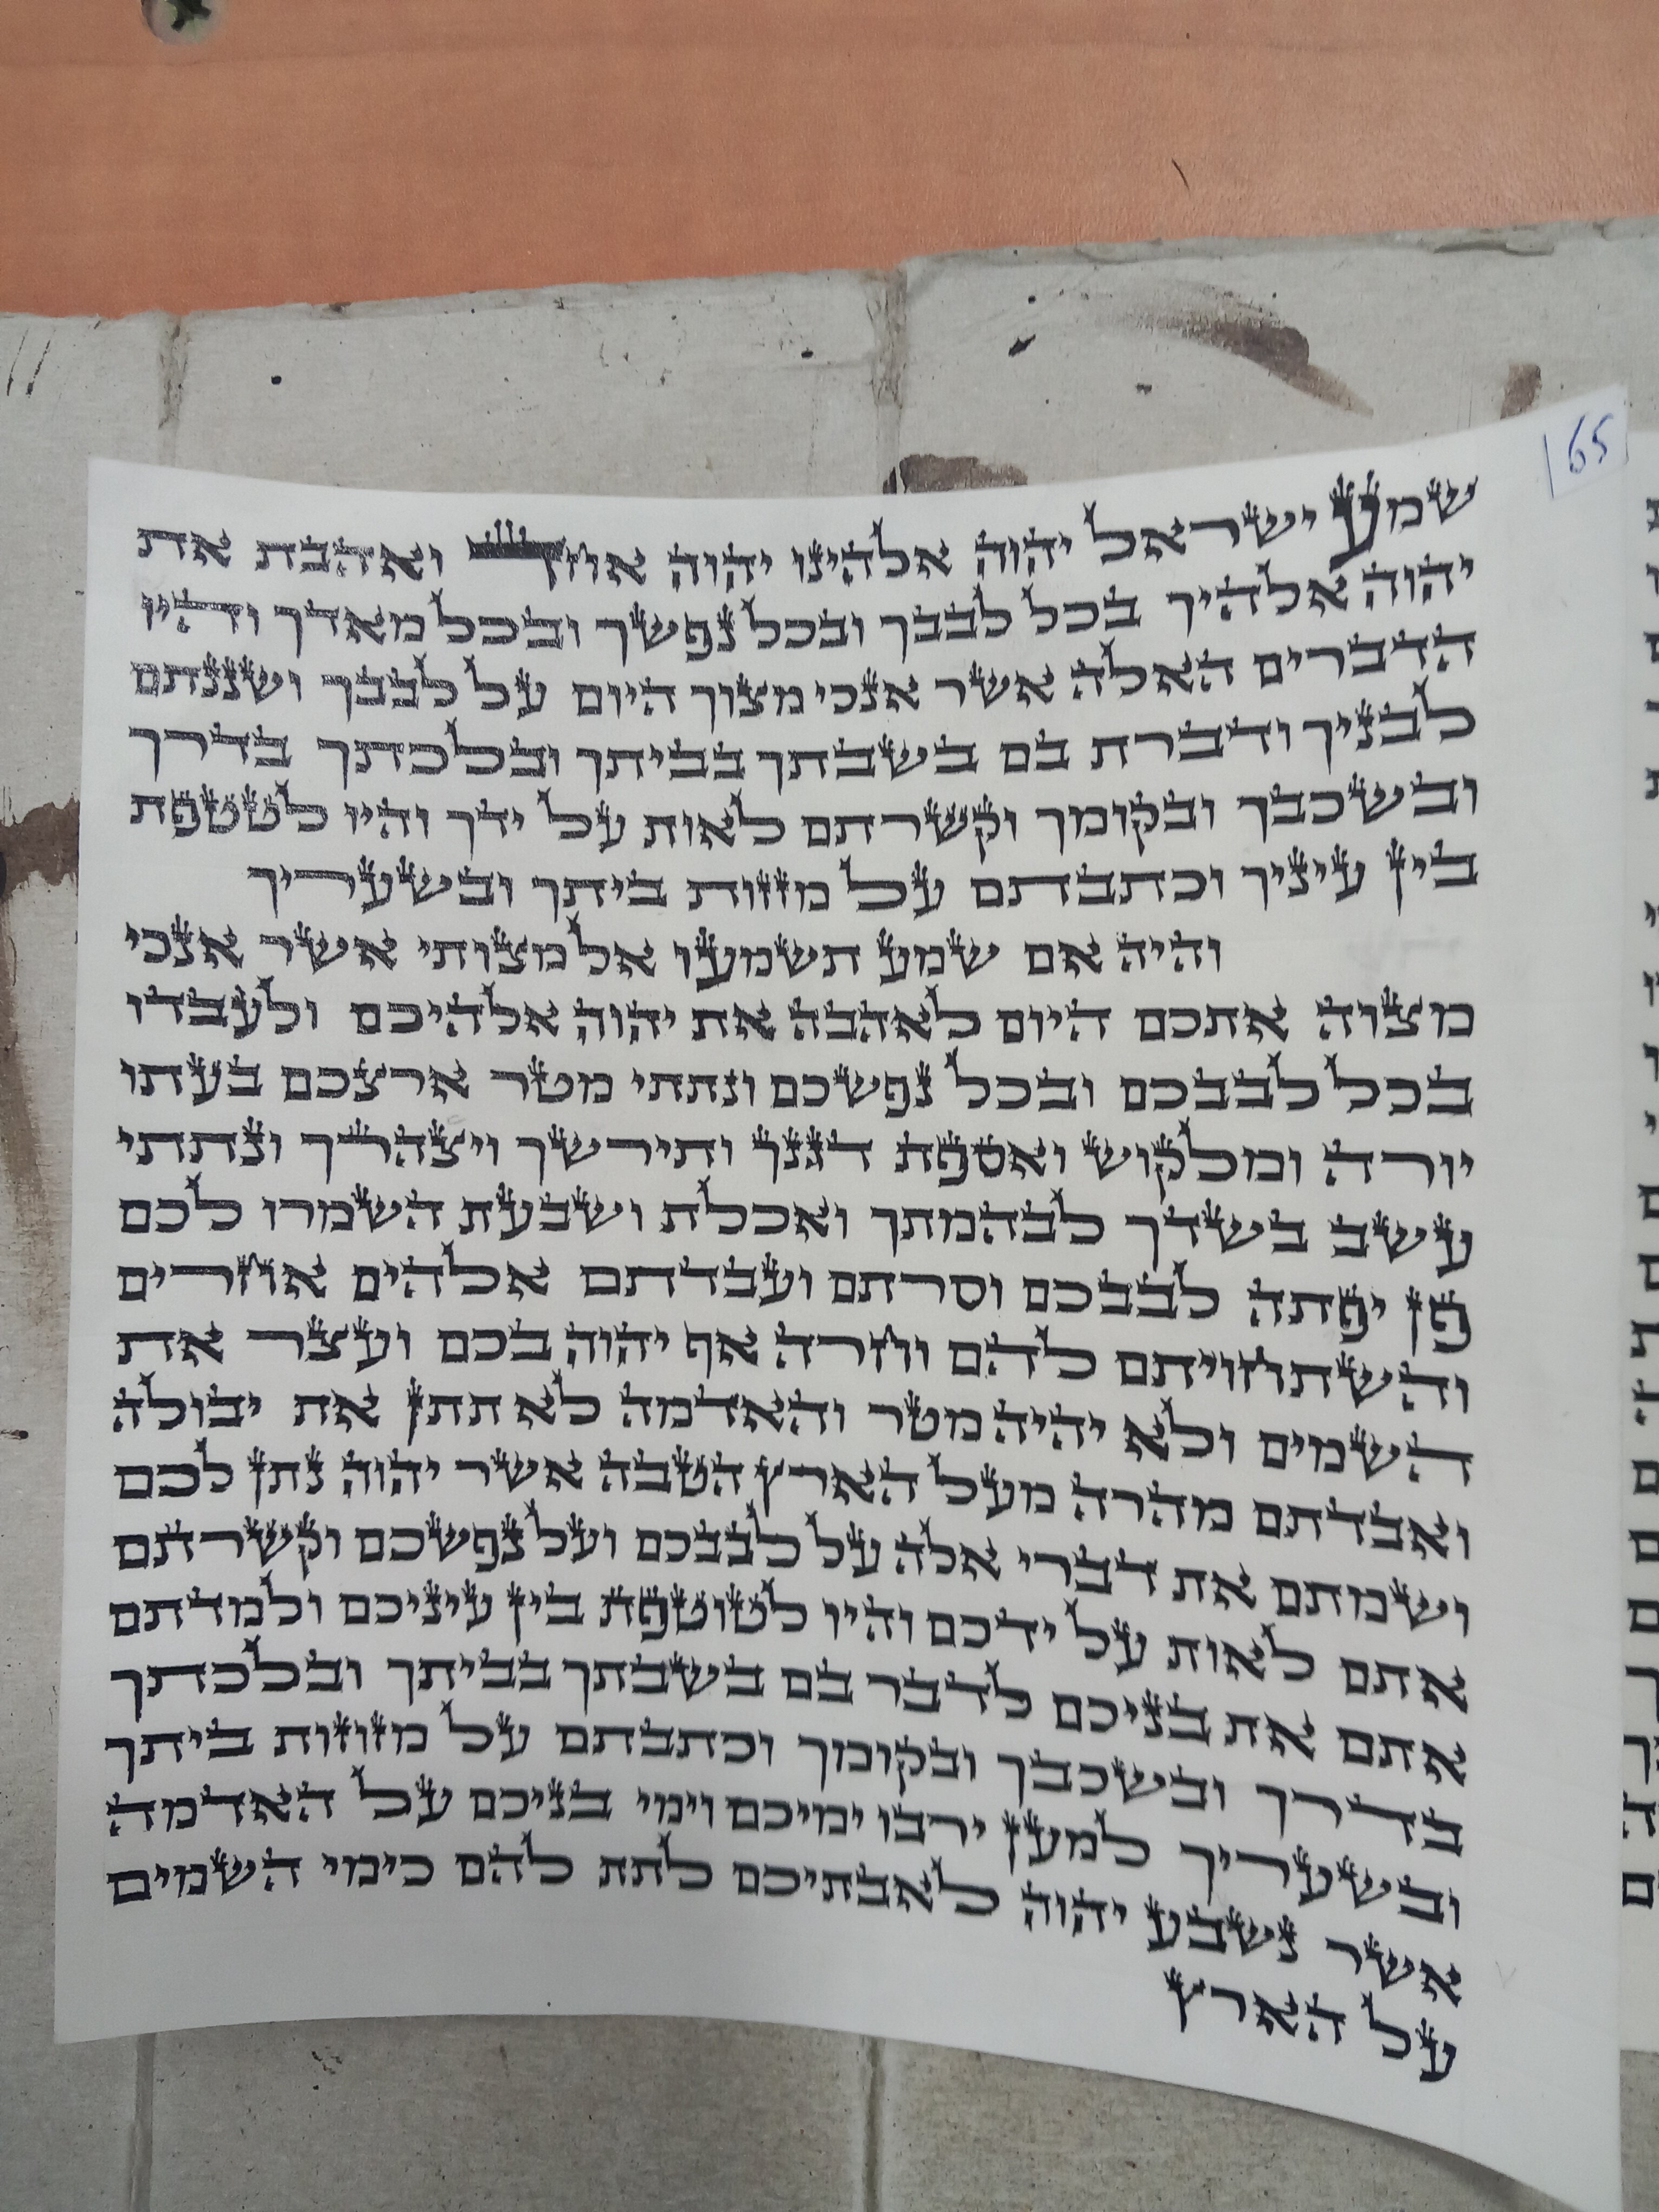 165
שמע ישראל יהוה אלהינו יהוה אחד ואהבת את
יהוה אלהיך בכל לבבך ובכל נפשך ובכל מאדך והיו
הדברים האלה אשר אנכי מצוך היום על לבבך ושננתם
לבניך ודברת בם בשבתך בביתך ובלכתך בדרך
ובשכבך ובקומך וקשרתם לאות על ידך והיו לטטפת
בין עיניך וכתבתם על מזזות ביתך ובשעריך
והיה אם שמע תשמעו אל מצותי אשר אנכי
מצוה אתכם היום לאהבה את יהוה אלהיכם ולעבדו
בכל לבבכם ובכל נפשכם ונתתי מטר ארצכם בעתו
יורה ומלקוש ואספת דגנך ותירשך ויצהרך ונתתי
עשב בשדך לבהמתך ואכלת ושבעת השמרו לכם
פן יפתה לבבכם וסרתם ועבדתם אלהים אחרים
והשתחויתם להם וחרה אף יהוה בכם ועצר את
השמים ולא יהיה מטר והאדמה לא תתן את יבולה
ואבדתם מהרה מעל הארץ הטבה אשר יהוה נתן לכם
ושמתם את דברי אלה על לבבכם ועל נפשכם וקשרתם
אתם לאות על ידכם והיו לטוטפת בין עיניכם ולמדתם
אתם את בניכם לדבר בם בשבתך בביתך ובלכתך
בדרך ובשכבך ובקומך וכתבתם על מזוזות ביתך
ובשעריך למען ירבו ימיכם וימי בניכם על האדמה
אשר נשבע יהוה לאבתיכם לתת להם כימי השמים
על הארץ